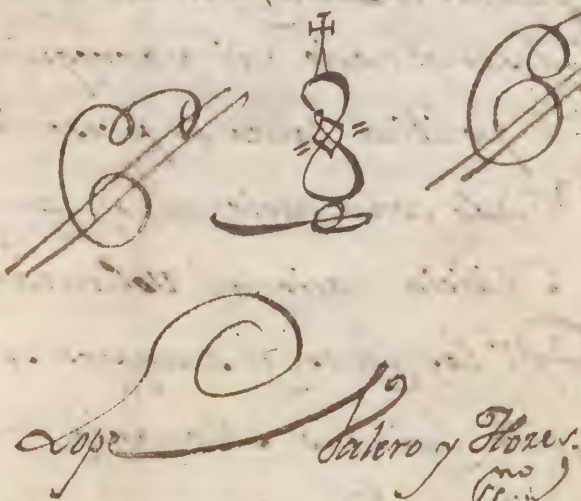 Lope Valero y Flores.